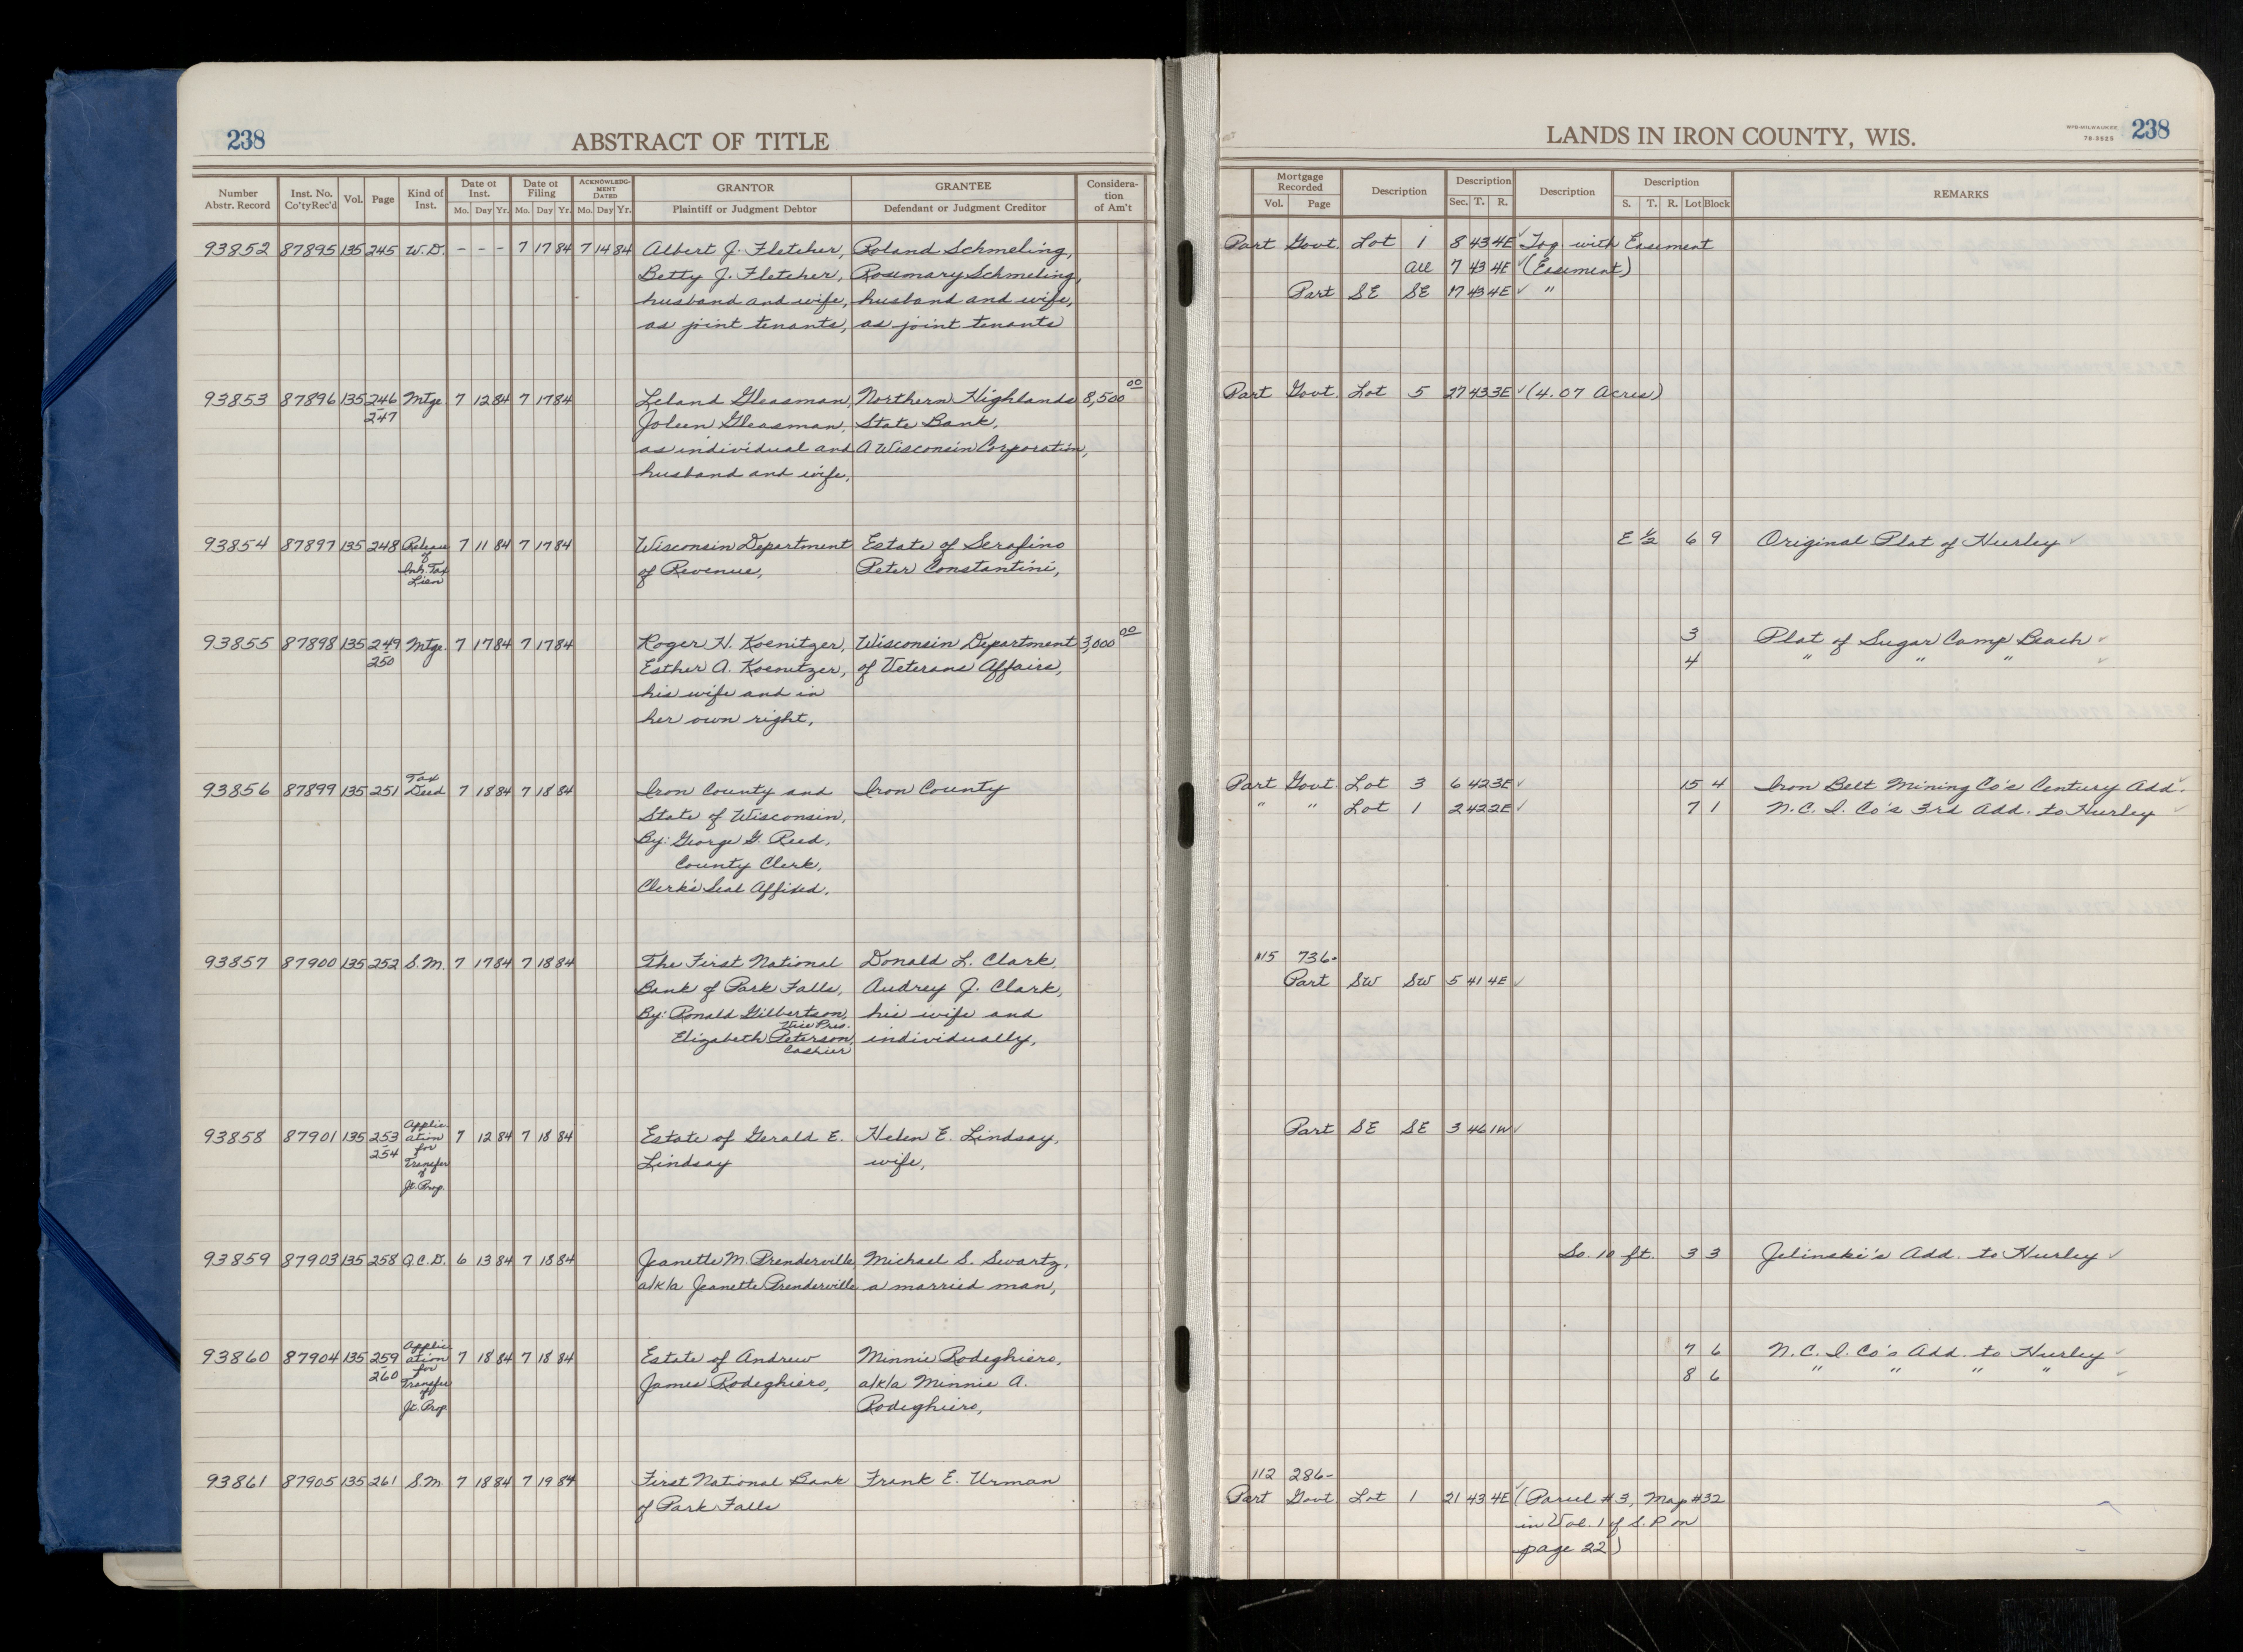 238
ABSTRACT OF TITLE
Number Abstr. Record
Inst. No. Co'ty Rec'd
Vol.
Page
Kind of Inst.
Date of Inst. Mo. Day Yr.
Date of Filing Mo. Day Yr.
ACKNOWLEDGMENT DATED Mo. Day Yr.
GRANTOR Plaintiff or Judgment Debtor
GRANTEE Defendant or Judgment Creditor
Considera-tion of Am't
93852 87895 135 245 W.D. - - - 7 17 84 7 14 84 Albert J. Fletcher, Roland Schmeling,
Betty J. Fletcher, Rosemary Schmeling,
husband and wife, husband and wife,
as joint tenants, as joint tenants
93853 87896 135 246 Mtge. 7 12 84 7 17 84 Leland Gleasman, Northern Highlands 8,500 00
247 Joleen Gleasman, State Bank,
as individual and A Wisconsin Corporation,
husband and wife,
93854 87897 135 248 Release 7 11 84 7 17 84 Wisconsin Department Estate of Serafino
of
Inh. Tax of Revenue, Peter Constantini,
Lien
93855 87898 135 249 Mtge. 7 17 84 7 17 84 Roger H. Koenitzer, Wisconsin Department 3,000 00
250 Esther A. Koenitzer, of Veterans Affairs,
his wife and in
her own right,
Tax
93856 87899 135 251 Deed 7 18 84 7 18 84 Iron County and Iron County
State of Wisconsin,
By: George G. Reed,
County Clerk,
Clerk's Seal Affixed,
93857 87900 135 252 S.M. 7 17 84 7 18 84 The First National Donald L. Clark,
Bank of Park Falls, Audrey J. Clark,
By: Ronald Gilbertson, his wife and
Vice Pres.
Elizabeth Peterson, individually,
Cashier
Applic
93858 87901 135 253 ation 7 12 84 7 18 84 Estate of Gerald E. Helen E. Lindsay,
254 for
Transfer Lindsay wife,
of
Jt. Prop.
93859 87903 135 258 Q.C.D. 6 13 84 7 18 84 Jeanette M. Prenderville Michael S. Swartz,
a/k/a Jeanette Prenderville a married man,
Applic
93860 87904 135 259 ation 7 18 84 7 18 84 Estate of Andrew Minnie Rodeghiero,
260 for
Transfer James Rodeghiero, a/k/a Minnie A.
of
Jt. Prop Rodeghiero,
93861 87905 135 261 S.M. 7 18 84 7 19 84 First National Bank Frank E. Urman
of Park Falls
LANDS IN IRON COUNTY, WIS.
WPB-MILWAUKEE
78-3525
238
Mortgage Recorded Vol. Page
Description
Description Sec. T. R.
Description
Description S. T. R. Lot Block
REMARKS
Part Govt. Lot 1 8 43 4E ✓ Tog. with Easement
All 7 43 4E ✓ (Easement)
Part SE SE 17 43 4E ✓ "
Part Govt. Lot 5 27 43 3E ✓ (4.07 Acres)
E 1/2 6 9 Original Plat of Hurley ✓
3 Plat of Sugar Camp Beach ✓
4 " " " ✓
Part Govt. Lot 3 6 42 3E ✓ 15 4 Iron Belt Mining Co's Century Add. ✓
" " Lot 1 2 42 2E ✓ 7 1 N.C.I. Co's 3rd Add. to Hurley ✓
115 736-
Part SW SW 5 41 4E ✓
Part SE SE 3 46 1W ✓
So. 10 ft. 3 3 Jelinski's Add. to Hurley ✓
7 6 N.C.I. Co's Add. to Hurley ✓
8 6 " " " " ✓
112 286-
Part Govt Lot 1 21 43 4E ✓ (Parcel #3, Map #32
in Vol. 1 of S.P. on
page 22)